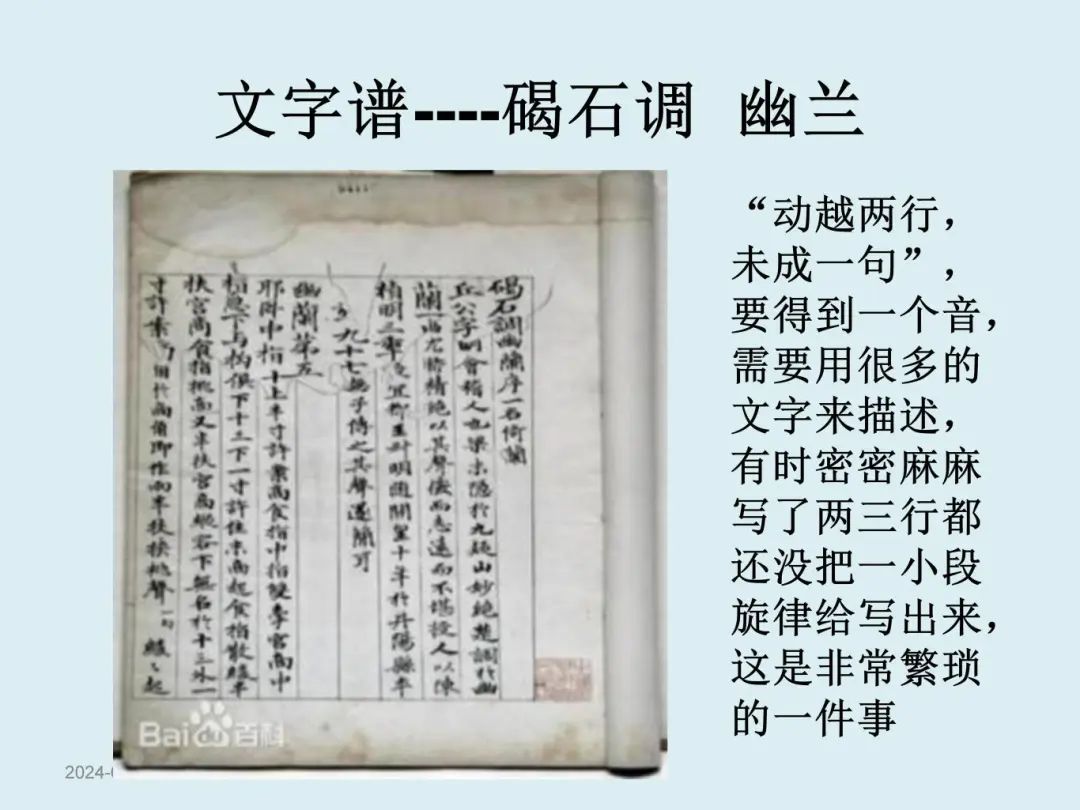 文字谱----碣石调 幽兰
“动越两行，
未成一句”，
要得到一个音，
需要用很多的
文字来描述，
有时密密麻麻
写了两三行都
还没把一小段
旋律给写出来，
这是非常繁琐
的一件事
碣石調幽蘭序一名倚蘭
丘公字明會稽人也梁末隱於九疑山妙絕楚調於幽
蘭一曲尤特精絕以其聲微而志遠而不堪授人以陳
禎明三年宜都王叔明隨開皇十年於丹陽縣卒
九十七無子傳之其聲遂簡耳
幽蘭第五
耶臥中指十上半寸許案商食指中指雙牽宮商中
指急下与构俱下十三下一寸許住末商起食指散緩半
扶宮商食指挑商又半扶宮商縱容下無名於十三外一
寸許案角於商角即作兩半扶挾挑聲一句 緩〻起
Bai百科
2024-